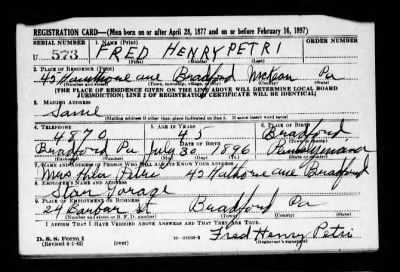 REGISTRATION CARD—(Men born on or after April 28, 1877 and on or before February 16, 1897)
SERIAL NUMBER 1. NAME (Print) ORDER NUMBER
U 573 FRED HENRY PETRI
(First) (Middle) (Last)
2. PLACE OF RESIDENCE (Print)
42 Hawthorne ave Bradford McKean Pa
(Number and street) (Town, township, village, or city) (County) (State)
[THE PLACE OF RESIDENCE GIVEN ON THE LINE ABOVE WILL DETERMINE LOCAL BOARD
JURISDICTION; LINE 2 OF REGISTRATION CERTIFICATE WILL BE IDENTICAL]
3. MAILING ADDRESS
Same
[Mailing address if other than place indicated on line 2. If same insert word same]
4. TELEPHONE 5. AGE IN YEARS 6. PLACE OF BIRTH
4870 45 Bradford
DATE OF BIRTH (Town or county)
Bradford Pa July 30 1896 Pennsylvania
(Exchange) (Number) (Mo.) (Day) (Yr.) (State or country)
7. NAME AND ADDRESS OF PERSON WHO WILL ALWAYS KNOW YOUR ADDRESS
Mrs Petri 42 Bradford
8. EMPLOYER'S NAME AND ADDRESS
9. PLACE OF EMPLOYMENT OR BUSINESS
24 Barbour St Bradford Pa
(Number and street or R. F. D. number) (Town) (County) (State)
I AFFIRM THAT I HAVE VERIFIED ABOVE ANSWERS AND THAT THEY ARE TRUE.
D. S. S. Form 1 Fred Henry Petri
(Revised 4-1-42) (over) (Registrant's signature)